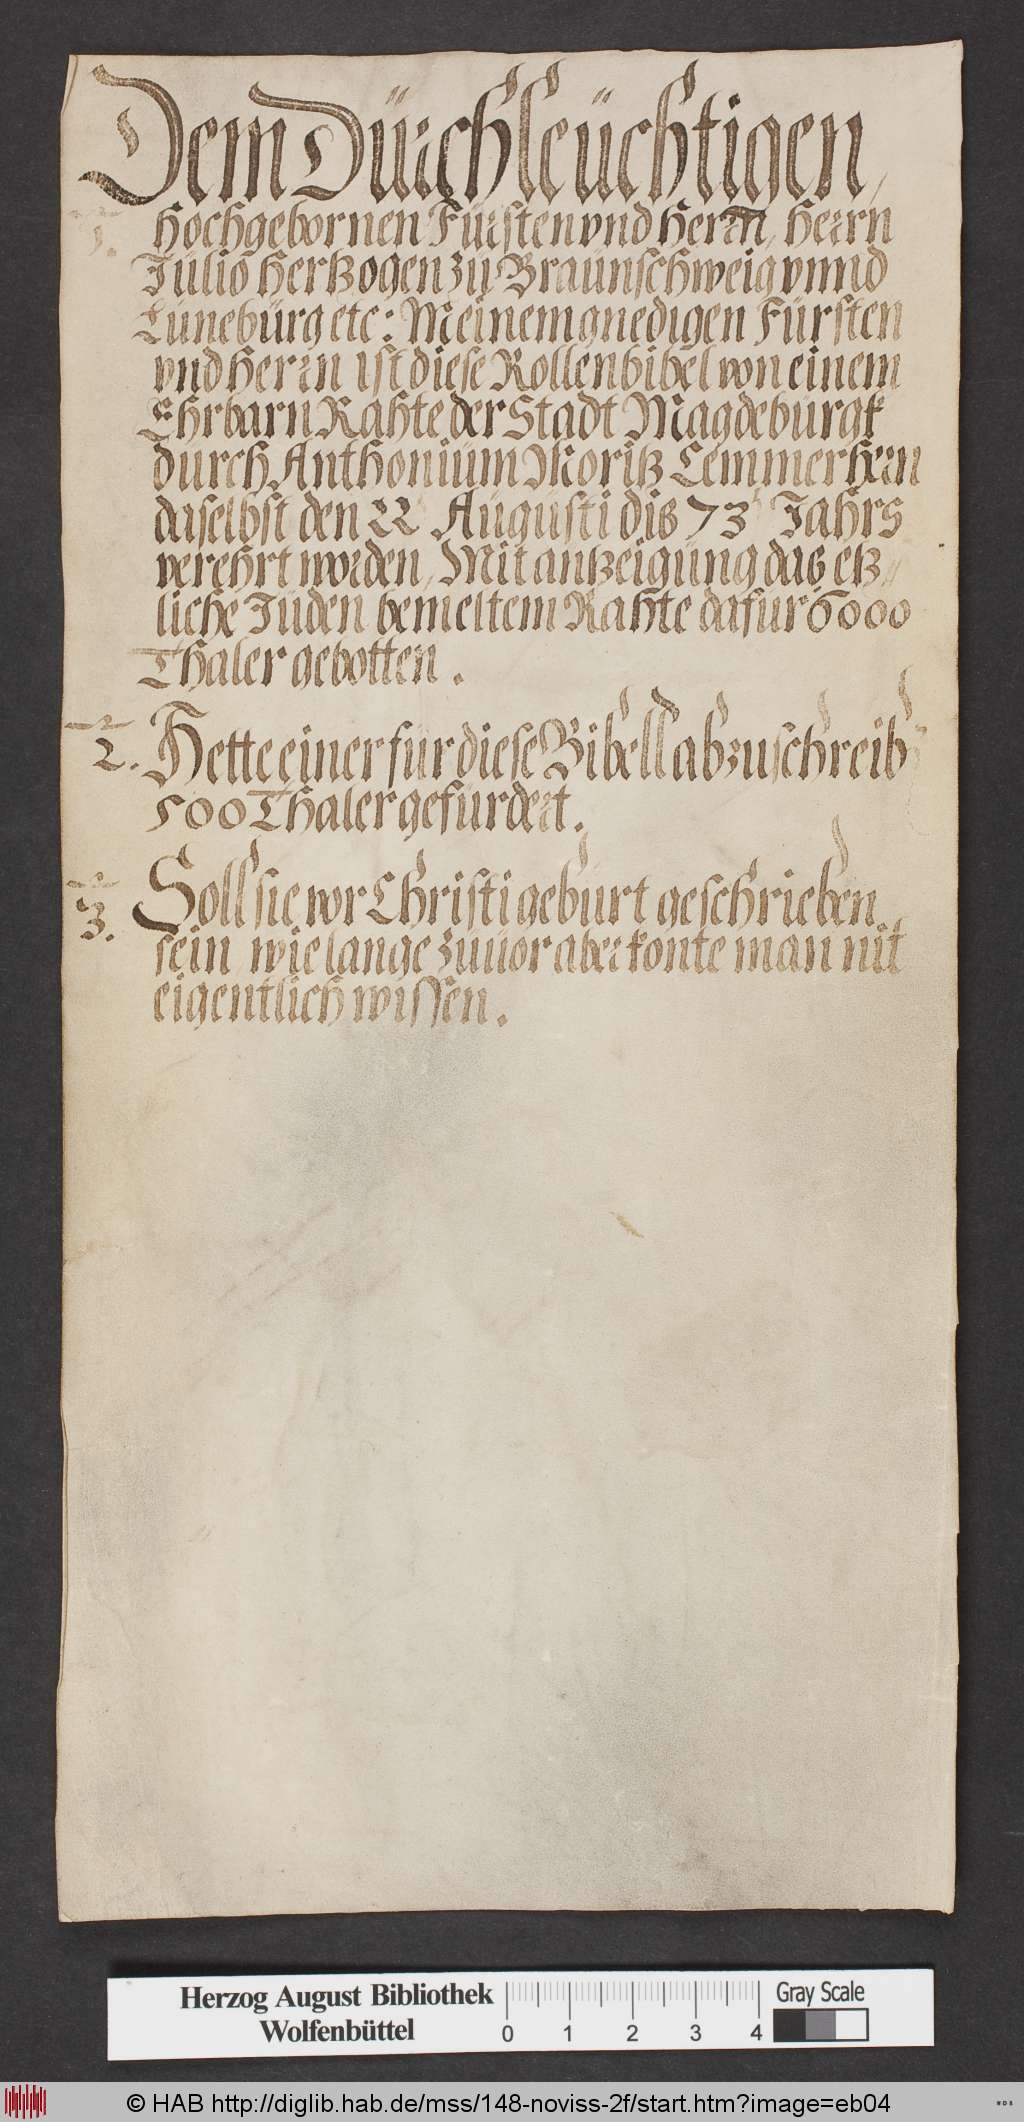 Dem Dürchleüchtigen,
1. Hochgebornen Fürsten vnd Herrn, Herrn
Jülio Hertzogen zü Braünschweig vnnd
Lünebürg etc: Meinem gnedigen Fürsten
vnd Herrn ist diese Rollenbibel von einem
Ehrbarn Rahte der Stadt Magdebürgk
durch Anthoniüm Moritz Cemmerhern
daselbst den 22 Augüsti diß 73 Jahrs
verehrt worden, Mit antzeigüng daß etz//
liche Jüden bemeltem Rahte dafur 6000
Thaler gebotten.
2. Hette einer für diese Bibell abzuschreib
500 Thaler gefürdert.
3. Soll sie vor Christi gebürt geschrieben
sein wie lange züüor aber konte man nit
eigentlich wissen.
Herzog August Bibliothek
Wolfenbüttel
0 1 2 3 4
Gray Scale
© HAB http://diglib.hab.de/mss/148-noviss-2f/start.htm?image=eb04